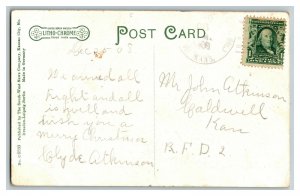 LITHO-CHROME
POST CARD
KANS.
Dec 05
We arrived all
right and all
is well and
wish you a
merry Christmas
Clyde Atkinson
Mr John Atkinson
Caldwell
Kan
R.F.D 2
Published by The South-West News Company, Kansas City, Mo.
Made in Germany